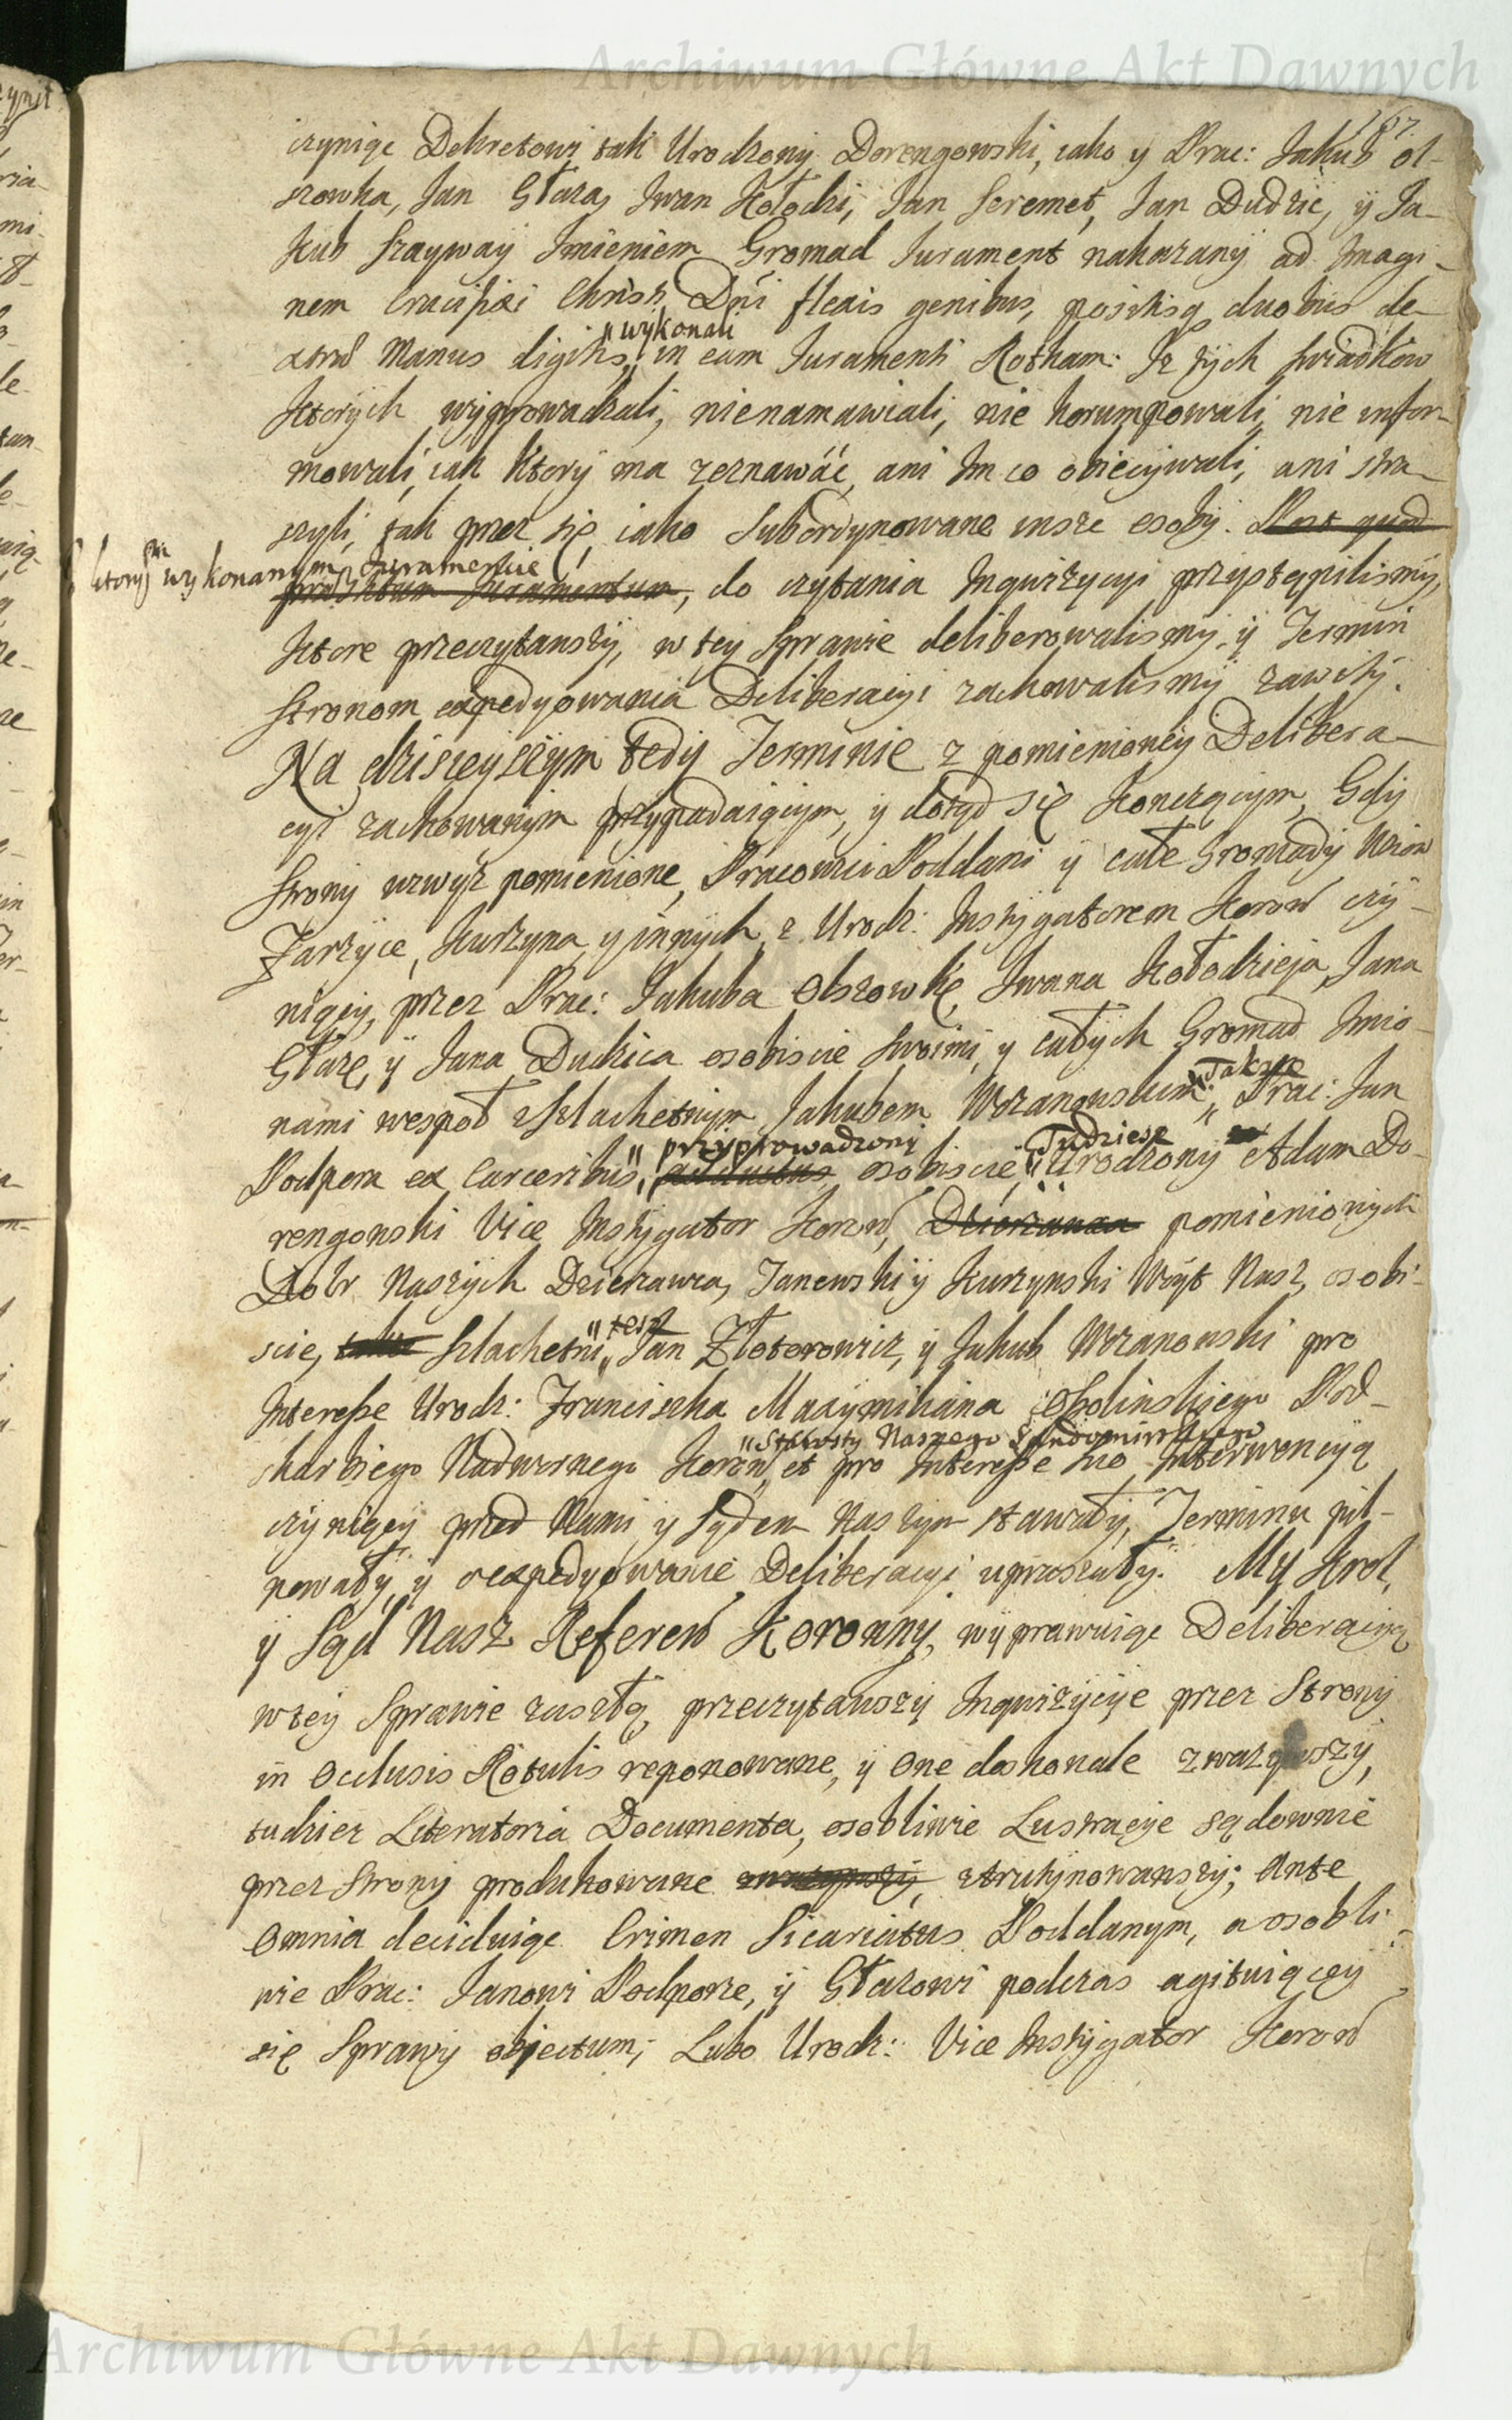 Archiwum Główne Akt Dawnych
167.
czyniąc Dekretowi, tak Urodzony Dorengowski, iako y Prac: Jakub Ol-
szowka, Jan Głaza, Iwan Kołodzi, Jan Seremet, Jan Dudzic, y Ja-
kub Szayway Imieniem Gromad Jurament nakazany ad Imagi-
nem Crucifixi Christi Dni flexis genibus, positisq duobus de-
xtræ Manus digitis, "wykonali in eam Juramenti Rotham: Iż tych swiadkow
ktorych wyprowadzali, nienamawiali, nie korumpowali, nie infor-
mowali, iak ktory ma zeznawać, ani Im co obiecywali, ani stra-
szyli, tak przez się, iako subordynowane insze osoby. Post quod
ktorym wykonanym Juramencie
præstitum Juramentum, do czytania Inquizycyi przystąpilismy,
ktore przeczytawszy, w tey Sprawie deliberowalismy, y Termin
stronom expedyowania Deliberacyi zachowalismy zawity.
Na dzisieyszym tedy Terminie z pomienioney Delibera-
cyi zachowanym przypadaiącym, y dotąd się konczącym, Gdy
strony wzwyż pomienione, Pracowici Poddani y całe Gromady Wsiow
Jarzyce, Kurzyna, y innych, z Urodz: Instygatorem Koron czy-
niący, przez Prac: Jakuba Olszowkę, Iwana Kołodzieja, Jana
Głazę, y Jana Dudzica osobiscie swoimi, y całych Gromad Imio-
nami wespoł z Szlachetnym Jakubem Wrzanowskim, "Także Prac: Jan
Podpora ex Carceribus, "przyprowadzony adductus osobiscie, "Tudziesz Urodzony Adam Do-
rengowski Vice Instygator Koron, Dzierzawca pomienionych
Dobr Naszych Dzierzawca, Janowski y Kurzynski Woyt Nasz, osobi-
scie, także Szlachetni "tesz Jan Złotorowicz, y Jakub Wrzanowski pro
Interesse Urodz: Franciszka Maxymiliana Ossolinskiego Pod-
skarbiego Nadwornego Koron, "Starosty Naszego Sandomirskiego et pro Interesse suo, Interwencyą
czyniący przed Nami y Sądem Naszym stawały, Terminu pil-
nowały, y o expedyowanie Deliberacyi upraszały. My Krol,
y Sąd Nasz Referen Koronny, wyprawuiąc Deliberacyą
w tey Sprawie zaszłą, przeczytawszy Inquizycye przez Strony
in Occlusis Rotulis reponowane, y One doskonale zwazywszy,
tudziez Literatoria Documenta, osobliwie Lustracye sądownie
przez strony produkowane zwazywszy, ztrutynowawszy; Ante
Omnia deciduiąc Crimen Sicariatus Poddanym, a osobli-
wie Prac: Janowi Podporze, y Głazowi podczas agituiącey
się Sprawy objectum; Lubo Urodz: Vice Instygator Koron
Archiwum Główne Akt Dawnych